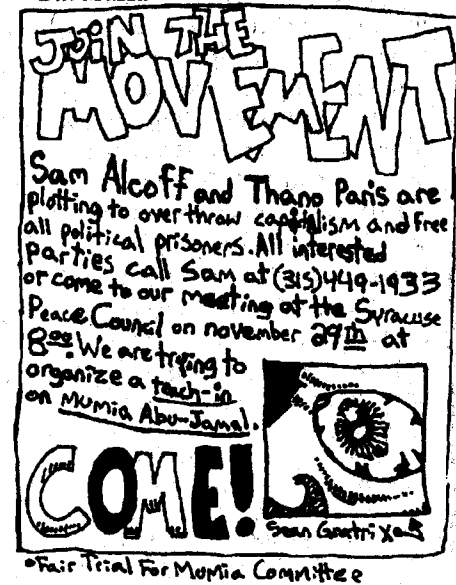 JOIN THE
MOVEMENT
Sam Alcoff and Thano Paris are
plotting to overthrow capitalism and free
all political prisoners. All interested
parties call Sam at (315)449-1933
or come to our meeting at the Syracuse
Peace Council on november 29th at
8:00. We are trying to
organize a teach-in
on Mumia Abu-Jamal.
COME!
Sean
•Fair Trial For Mumia Committee